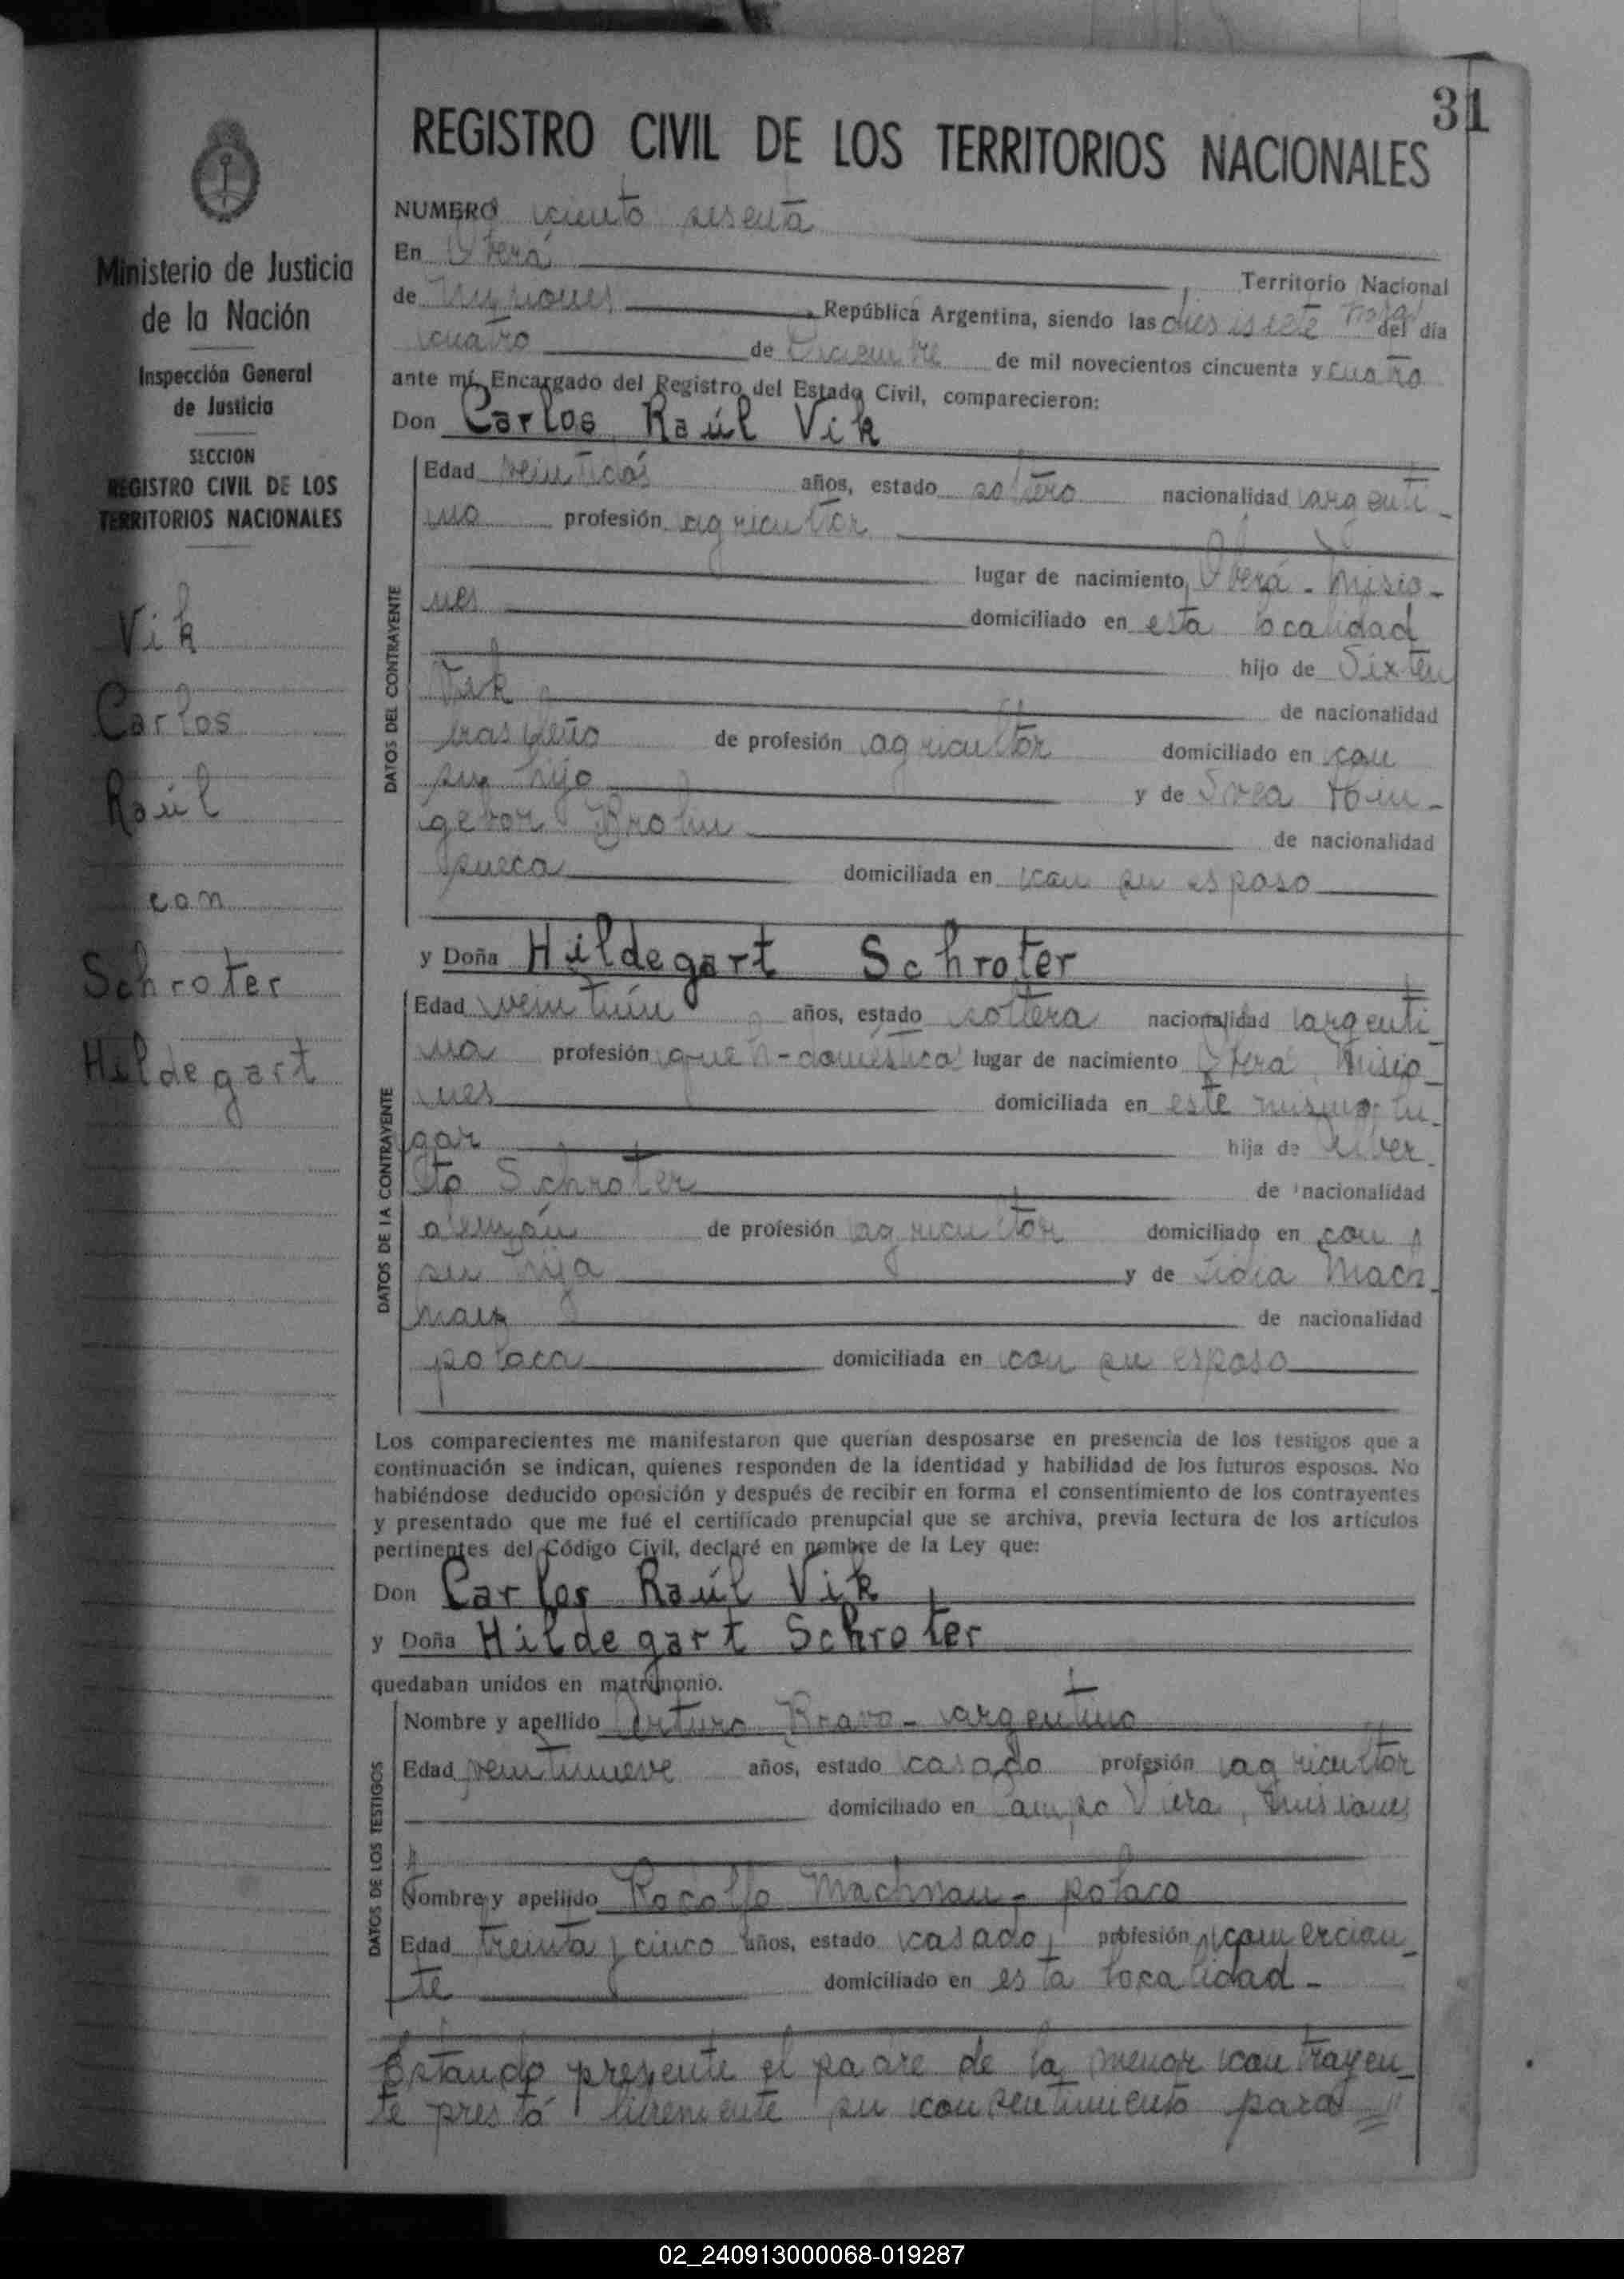 31
REGISTRO CIVIL DE LOS TERRITORIOS NACIONALES
Ministerio de Justicia
de la Nación
Inspección General
de Justicia
SECCION
REGISTRO CIVIL DE LOS
TERRITORIOS NACIONALES
Vik
Carlos
Raúl
con
Schroter
Hildegart
NUMERO ciento sesenta
En Oberá Territorio Nacional
de Misiones, República Argentina, siendo las diesisiete horas del día
cuatro de Diciembre de mil novecientos cincuenta y cuatro
ante mí, Encargado del Registro del Estado Civil, comparecieron:
Don Carlos Raúl Vik
DATOS DEL CONTRAYENTE
Edad veintidós años, estado soltero nacionalidad argenti-
no profesión agricultor
lugar de nacimiento Oberá - Misio-
nes domiciliado en esta localidad
hijo de Sixten
Vik de nacionalidad
brasileño de profesión agricultor domiciliado en con
su hijo y de Svea
Brolin de nacionalidad
sueca domiciliada en con su esposo
y Doña Hildegart Schroter
DATOS DE LA CONTRAYENTE
Edad veintiún años, estado soltera nacionalidad argenti
na profesión queh-domésticos lugar de nacimiento Oberá, Misio-
nes domiciliada en este mismo lu-
gar hija de Alber-
to Schroter de nacionalidad
alemán de profesión agricultor domiciliado en con
su hija y de Lidia Mach-
nau de nacionalidad
polaca domiciliada en con su esposo
Los comparecientes me manifestaron que querían desposarse en presencia de los testigos que a
continuación se indican, quienes responden de la identidad y habilidad de los futuros esposos. No
habiéndose deducido oposición y después de recibir en forma el consentimiento de los contrayentes
y presentado que me fué el certificado prenupcial que se archiva, previa lectura de los artículos
pertinentes del Código Civil, declaré en nombre de la Ley que:
Don Carlos Raúl Vik
y Doña Hildegart Schroter
quedaban unidos en matrimonio.
DATOS DE LOS TESTIGOS
Nombre y apellido Arturo Bravo - argentino
Edad veintinueve años, estado casado profesión agricultor
domiciliado en Campo Viera, Misiones
Nombre y apellido Rodolfo Machnau - polaco
Edad treinta y cinco años, estado casado, profesión comercian-
te domiciliado en esta localidad -
Estando presente el padre de la menor contrayen-
te prestó libremente su consentimiento para
02_240913000068-019287